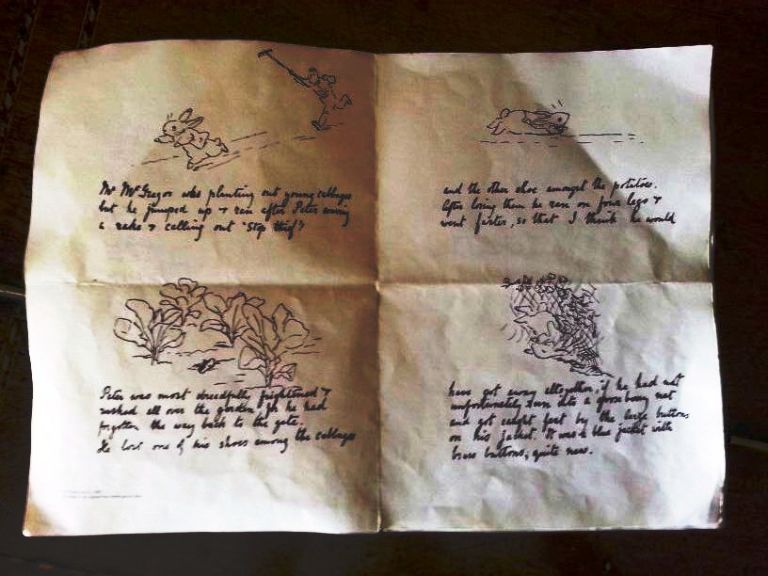 Mr McGregor was planting out young cabbages
but he jumped up & ran after Peter waving
a rake & calling out "Stop thief"!
Peter was most dreadfully frightened &
rushed all over the garden for he had
forgotten the way back to the gate.
He lost one of his shoes among the cabbages
and the other shoe amongst the potatoes.
After losing them he ran on four legs &
went faster, so that I think he would
have got away altogether, if he had not
unfortunately run into a gooseberry net
and got caught fast by the large buttons
on his jacket. It was a blue jacket with
brass buttons, quite new.